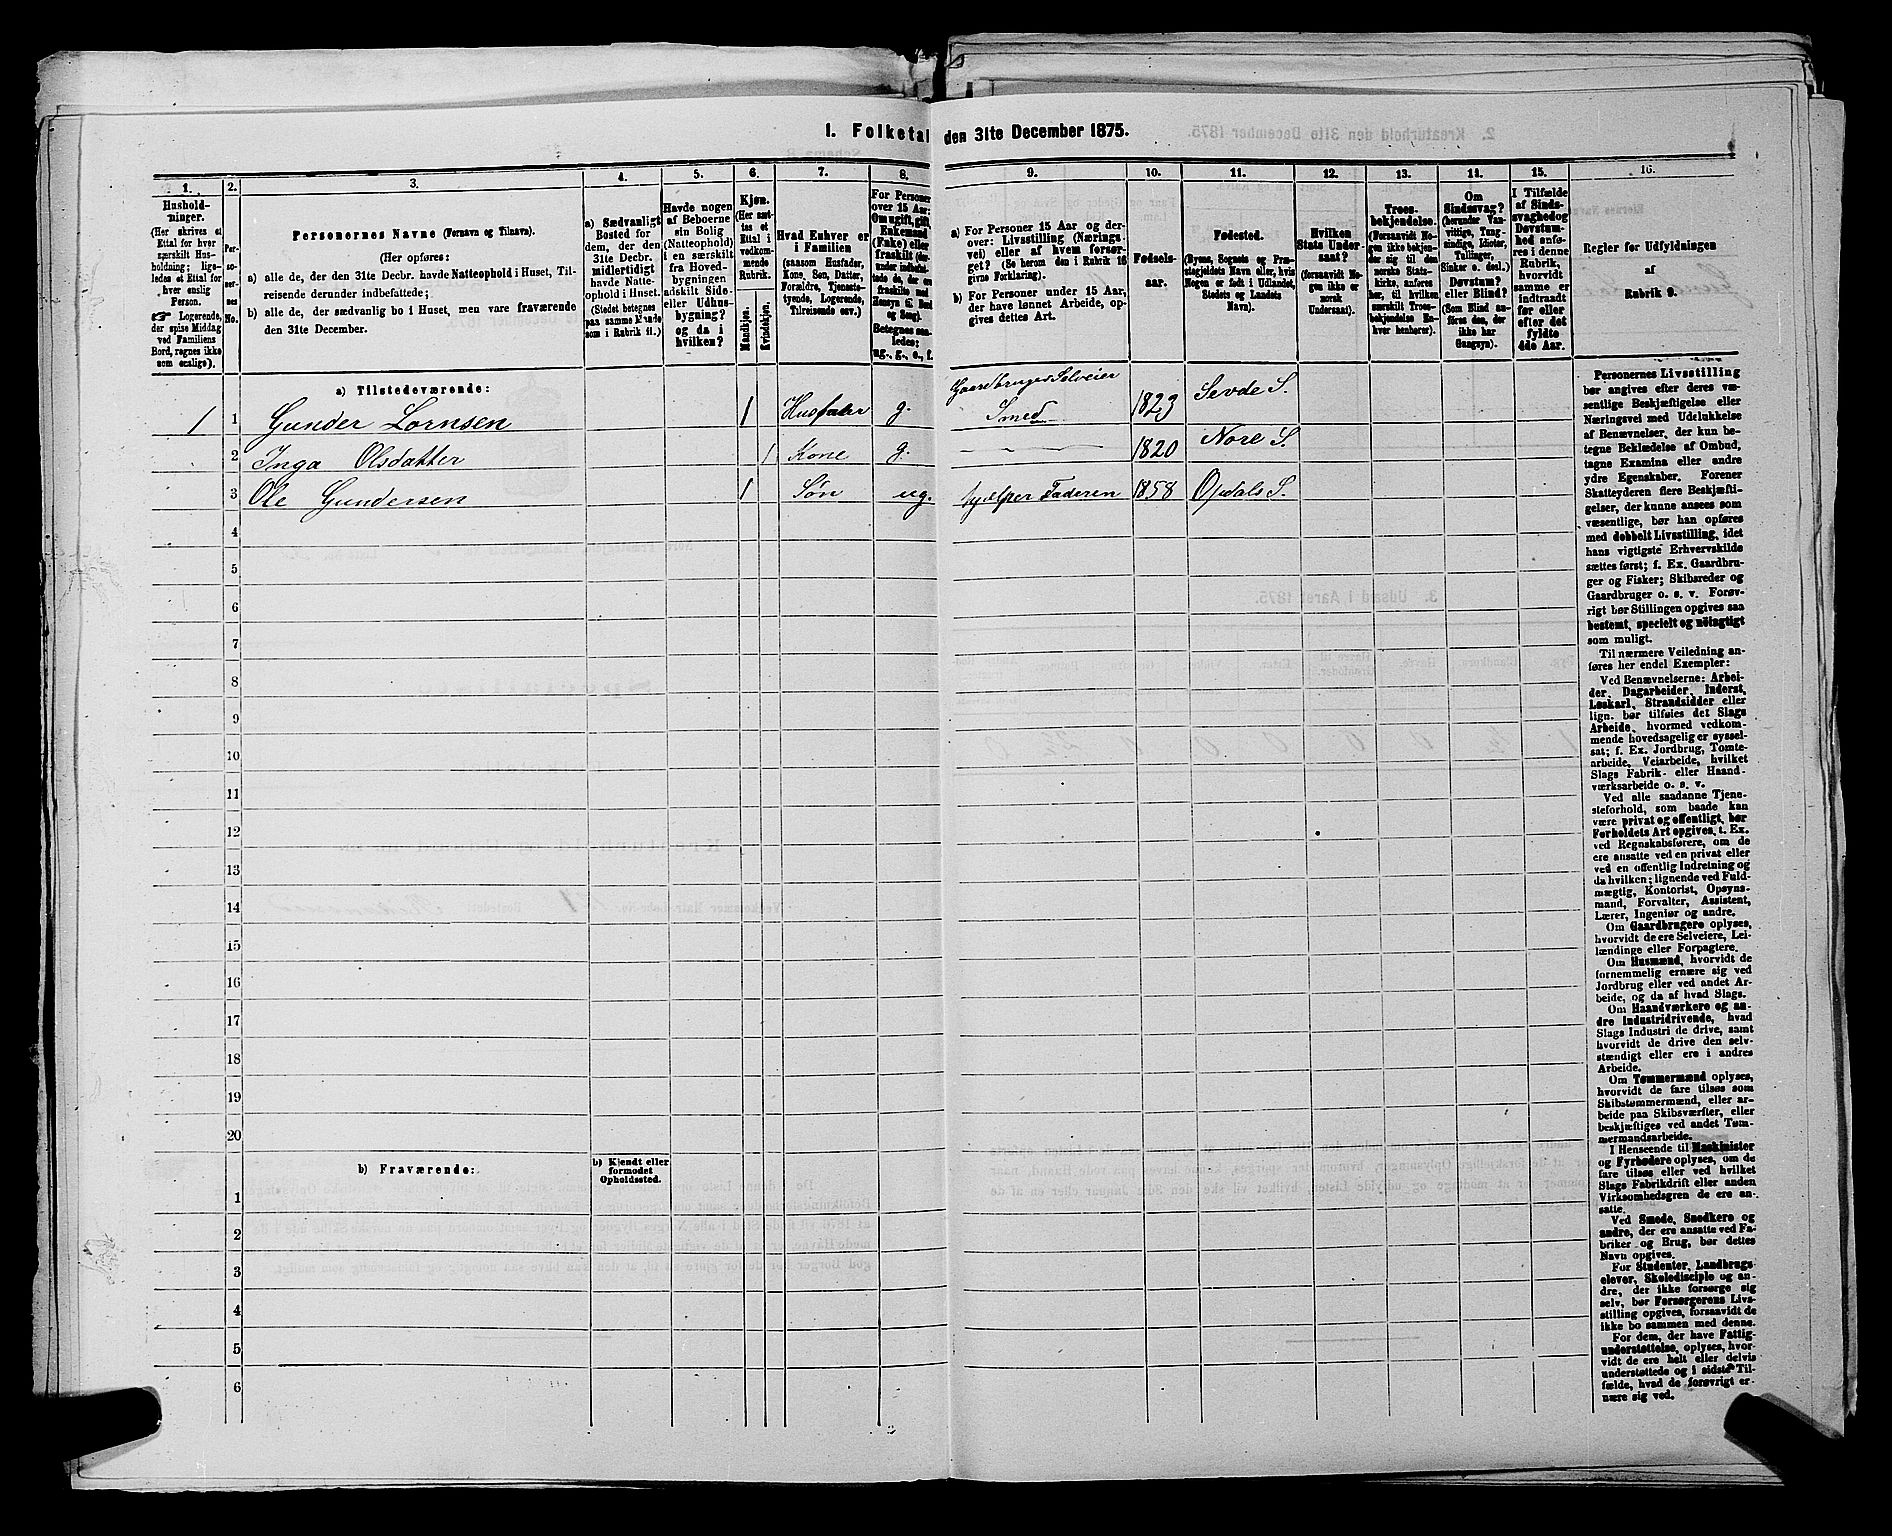 1. Folketal den 31te December 1875.
1. 2. 3. 4. 5. 6. 7. 8. 9. 10. 11. 12. 13. 14. 15. 16.
Hushold-
ninger.
(Her skrives et
Ettal for hver
særskilt Hus-
holdning; lige-
ledes et Ettal for
hver enslig
Person.
☞ Logerende,
der spise Middag
ved Familiens
Bord, regnes ikke
som enslige).
Per-
so-
ner-
nes
No.
Personernes Navne (Fornavn og Tilnavn).
(Her opføres:
a) alle de, der den 31te Decbr. havde Natteophold i Huset, Til-
reisende derunder indbefattede;
b) alle de, der sædvanlig bo i Huset, men vare fraværende
den 31te December.
a) Sædvanligt
Bosted for
dem, der den
31te Decbr.
midlertidigt
havde Natte-
ophold i Huset.
(Stedet betegnes
paa samme Maade
som i Rubrik 11.)
Havde nogen
af Beboerne
sin Bolig
(Natteophold)
i en særskilt
fra Hoved-
bygningen
adskilt Side-
eller Udhus-
bygning?
og da i
hvilken?
Kjøn.
(Her sæt-
tes et
Ettal i
vedkom-
mende
Rubrik.
Mandkjøn.
Kvindekjøn.
Hvad Enhver er
i Familien
(saasom Husfader,
Kone, Søn, Datter,
Forældre, Tjeneste-
tyende, Logerende,
Tilreisende osv.)
For Personer
over 15 Aar:
Om ugift, gift,
Enkemand
(Enke) eller
fraskilt
Betegnes saa-
ledes:
ug., g., e., f.
a) For Personer 15 Aar og der-
over: Livsstilling (Nærings-
vei) eller af hvem forsør-
get? (Se herom den i Rubrik 16
givne Forklaring).
b) For Personer under 15 Aar,
der have lønnet Arbeide, op-
gives dettes Art.
Fødsels-
aar.
Fødested.
(Byens, Sognets og Præ-
stegjeldets Navn eller, hvis
Nogen er født i Udlandet,
Stedets og Landets
Navn).
Hvilken
Stats Under-
saat?
(forsaavidt No-
gen ikke er
norsk
Undersaat).
Troes-
bekjendelse.
(Forsaavidt No-
gen ikke bekjen-
der sig til den
norske Stats-
kirke, anføres
her, til hvilken
særskilt Troes-
bekjendelse En-
hver henhører).
14.
Om
Sindssvag?
(herunder Van-
vittige, Tung-
sindige, Idioter,
Tullinger,
Sinker o. desl.)
Døvstum?
eller Blind?
(Som Blind an-
føres den, der
ikke har
Gangsyn).
I Tilfælde
af Sinds-
svaghed og
Døvstum-
hed anfø-
res i denne
Rubrik,
hvorvidt
samme er
indtraadt
før eller
efter det
fyldte
4de Aar.
Regler for Udfyldningen
af
Rubrik 9.
a) Tilstedeværende:
Gaardbruger Selveier
1 1 Gunder Lornsen 1 Husfader g. Smed 1823 Sevde S.
2 Inga Olsdatter 1 Kone g. 1820 Nore S.
3 Ole Gundersen 1 Søn ug. hjælper Faderen 1858 Opdals S.
4
5
6
7
8
9
10
11
12
13
14
15
16
17
18
19
20
b) Fraværende:
b) Kjendt eller
formodet
Opholdssted.
1
2
3
4
5
6
Personernes Livsstilling
bør angives efter deres væ-
sentlige Beskjæftigelse eller
Næringsvei med Udelukkelse
af Benævnelser, der kun be-
tegne Beklædelse af Ombud,
tagne Examina eller andre
ydre Egenskaber. Forener
Skatteyderen flere Beskjæfti-
gelser, der kunne ansees som
væsentlige, bør han opføres
med dobbelt Livsstilling, idet
hans vigtigste Erhvervskilde
sættes først; f. Ex. Gaardbru-
ger og Fisker; Skibsreder og
Gaardbruger o. s. v. Forøv-
rigt bør Stillingen opgives saa
bestemt, specielt og nøiagtigt
som muligt.
Til nærmere Veiledning an-
føres her endel Exempler:
Ved Benævnelserne: Arbei-
der, Dagarbeider, Inderst,
Løskarl, Strandsidder eller
lign. bør tilføies det Slags
Arbeide, hvormed vedkom-
mende hovedsagelig er syssel-
sat; f. Ex. Jordbrug, Tomte-
arbeide, Veiarbeide, hvilket
Slags Fabrik- eller Haand-
værksarbeide o. s. v.
Ved alle saadanne Tjene-
steforhold, som baade kan
være privat og offentligt, bør
Forholdets Art opgives, t. Ex.
ved Regnskabsførere, om de
ere ansatte ved en privat eller
ved en offentlig Indretning og
da hvilken; lignende ved Fuld-
mægtig, Kontorist, Opsyns-
mand, Forvalter, Assistent,
Lærer, Ingeniør og andre.
Om Gaardbrugere oplyses,
hvorvidt de ere Selveiere, Lei-
lændinge eller Forpagtere.
Om Husmænd, hvorvidt de
fornemmelig ernære sig ved
Jordbrug eller ved andet Ar-
beide, og da af hvad Slags.
Om Haandværkere og an-
dre Industridrivende, hvad
Slags Industri de drive, samt
hvorvidt de drive den selv-
stændigt eller ere i andres
Arbeide.
Om Tømmermænd oplyses,
hvorvidt de fare tilsøs som
Skibstømmermænd, eller ar-
beide paa Skibsværfter, eller
beskjæftiges ved andet Tøm-
mermandsarbeide.
I Henseende til Maskinister
og Fyrbødere oplyses, om de
fare tilsøs eller ved hvilket
Slags Fabrikdrift eller anden
Virksomhedsgren de ere an-
satte.
Ved Smede, Snedkere og
andre, der ere ansatte ved Fa-
briker og Brug, bør dettes
Navn opgives.
For Studenter, Landbrugs-
elever, Skoledisciple og an-
dre, der ikke forsørge sig
selv, bør Forsørgerens Livs-
stilling opgives, forsaavidt de
ikke bo sammen med denne.
For dem, der have Fattig-
understøttelse, oplyses, hvor-
vidt de ere helt eller delvis
understøttede og i sidste Til-
fælde, hvad de forøvrigt er-
nære sig ved.